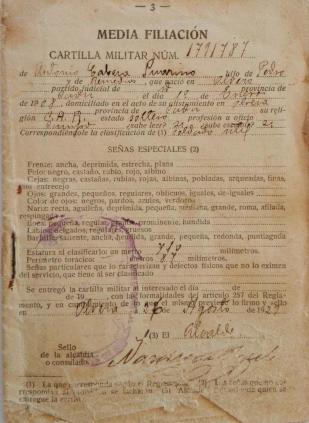 — 3 —
MEDIA FILIACIÓN
CARTILLA MILITAR NÚM. 1791787
de Antonio Cabrera hijo de Pedro
y de Remedios que nació en
partido judicial de provincia de
el día 1º de Enero
de 1908 domiciliado en el acto de su alistamiento en
provincia de su reli-
gión C.A.R. estado soltero profesión u oficio
sabe leer sabe escribir
Correspondiéndole la clasificación de (1) Soldado útil
SEÑAS ESPECIALES (2)
Frente: ancha, deprimida, estrecha, plana
Pelo: negro, castaño, rubio, rojo, albino
Cejas: negras, castañas, rubias, rojas, albinas, pobladas, arqueadas, finas,
con entrecejo
Ojos: grandes, pequeños, regulares, oblicuos, iguales, desiguales
Color de ojos: negros, pardos, azules, verdoso
Nariz: recta, aguileña, deprimida, pequeña, grande, roma, afilada,
respingada
Boca: pequeña, regular, grande, prominente, hundida
Labios: delgados, regulares, gruesos
Barba: saliente, ancha, hendida, grande, redonda, puntiaguda, pequeña
Estatura al clasificarlo: un metro 710 milímetros.
Perímetro torácico: 87 milímetros.
Señas particulares que lo caracterizan y defectos físicos que no lo eximen
del servicio, que tiene al ser clasificado
Se entregó la cartilla militar al interesado el día de
de 19 con las formalidades del artículo 257 del Regla-
mento, y en cumplimiento de que el mismo previene lo firmo y sello
en a 26 de Agosto de 1929
(3) El Alcalde
Sello
de la alcaldía
o consulado
(1) La que corresponda según el Reglamento. (2) Las señas que no co-
rrespondan al se tacharán. (3) Alcalde o Cónsul ante quien se
entregue la cartilla.